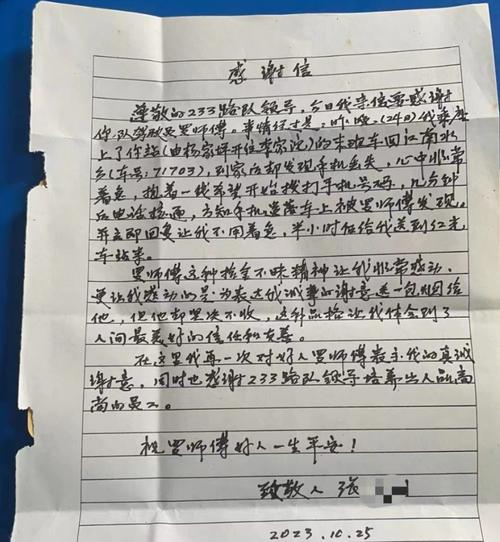 感谢信
尊敬的233路队领导，今日我来信要感谢
你队驾驶员罗师傅。事情经过是：昨晚(24日)我乘座
上了你站(由杨家坪开往李家沱)的末班车回江南水
乡(车号：71703)，到家后却发现手机丢失，心中非常
着急，抱着一线希望开始拨打手机号码，几分钟
后电话接通，方知手机遗落车上被罗师傅发现，
并立即回复让我不用着急，半小时后给我送到红光
车站来。
罗师傅这种拾金不昧精神让我非常感动，
更让我感动的是为表达我诚挚的谢意送一包烟给
他，但他却坚决不收，这种品格让我体会到了
人间最美好的信任和友善。
在这里我再一次对好人罗师傅表示我的真诚
谢意，同时也感谢233路队领导培养出人品高
尚的员工。
祝罗师傅好人一生平安！
致敬人 张
2023.10.25